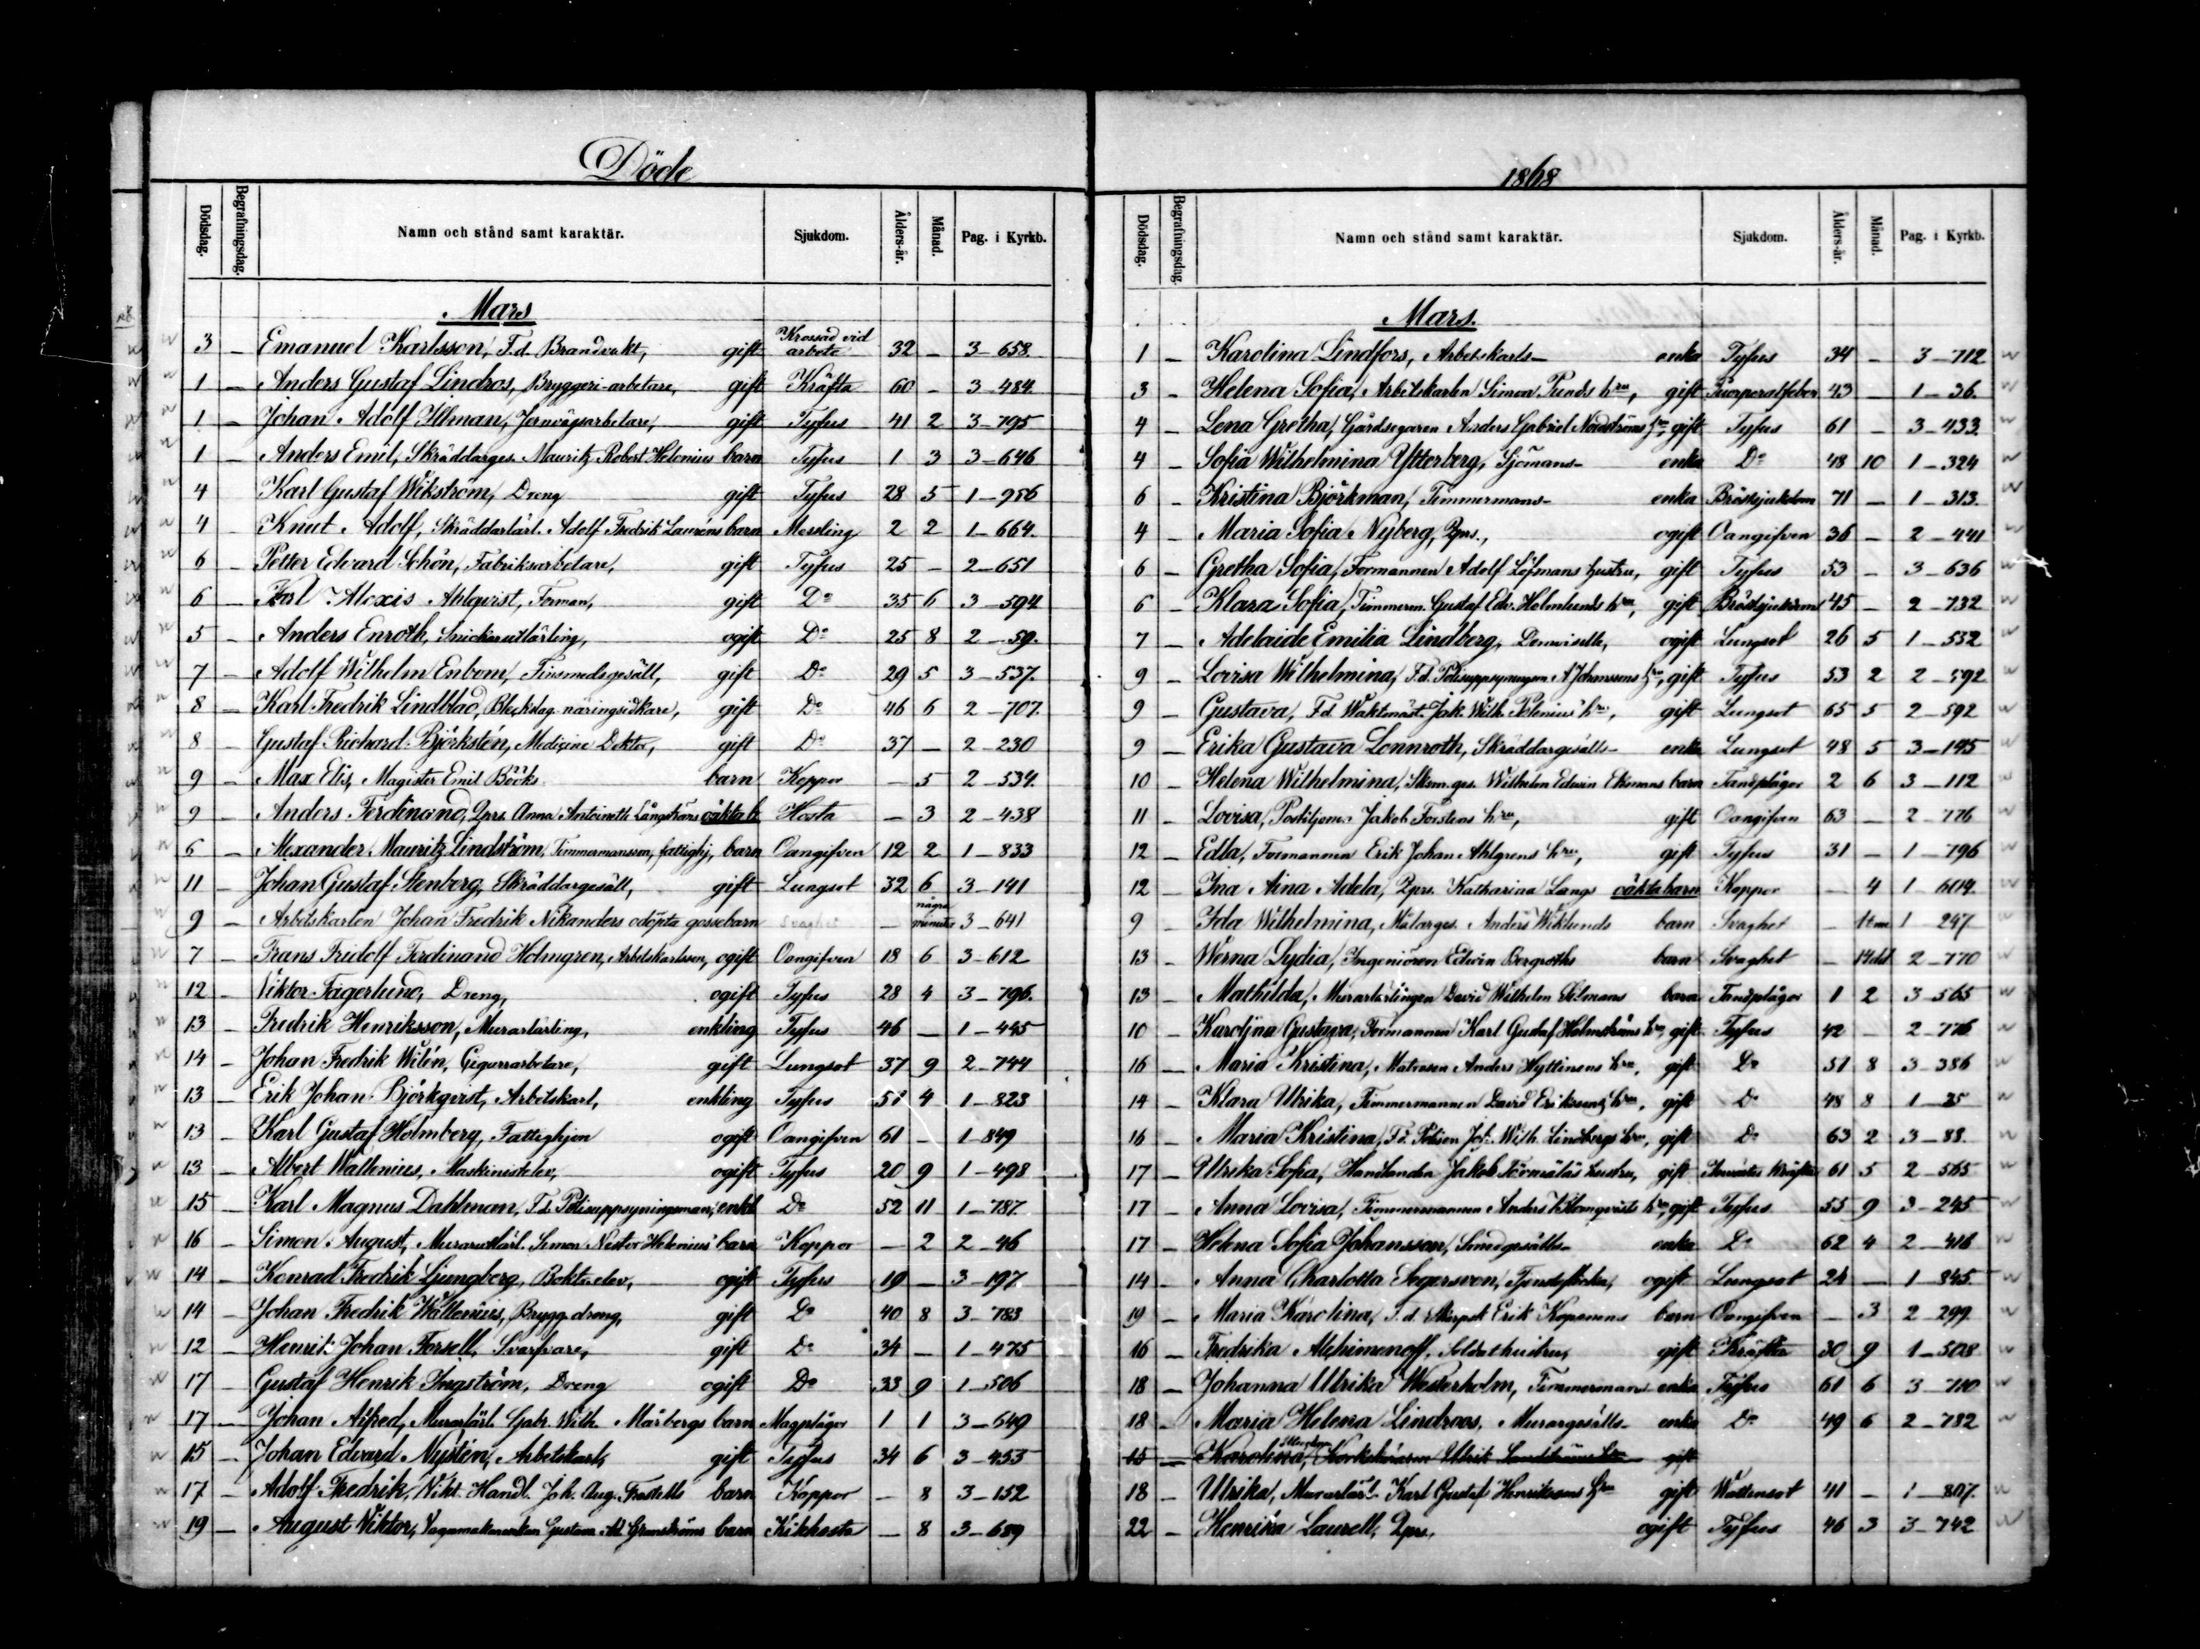 Döde
Dödsdag. Begrafningsdag. Namn och stånd samt karaktär. Sjukdom. Ålders-år. Månad. Pag. i Kyrkb.
Mars
3 — Emanuel Karlsson, F.d. Brandvakt, gift Krossad vid arbete 32 — 3—658.
1 — Anders Gustaf Lindros, Bryggeri-arbetare, gift Kräfta 60 — 3—484.
1 — Johan Adolf Illman, Jernvägsarbetare, gift Tyfus 41 2 3—795
1 — Anders Emil, Skräddarges. Mauritz Robert Helenius barn Tyfus 1 3 3—646
4 — Karl Gustaf Wikström, Dreng gift Tyfus 28 5 1—256
4 — Knut Adolf, Skräddarlärl. Adolf Fredrik Lauréns barn Messling 2 2 1—664.
6 — Petter Edvard Schön, Fabriksarbetare, gift Tyfus 25 — 2—651
6 — Karl Alexis Ahlqvist, Forman, gift Do 35 6 3—594
5 — Anders Enroth, Snickarutlärling, ogift Do 25 8 2—59.
7 — Adolf Wilhelm Enbom, Finsmedsgesäll, gift Do 29 5 3—537.
8 — Karl Fredrik Lindblad, Bleckslag. näringsidkare, gift Do 46 6 2—707.
8 — Gustaf Richard Björkstén, Medicine Doktor, gift Do 37 — 2—230
9 — Max Elis, Magister Emil Bööks barn Koppor — 5 2—534.
9 — Anders Ferdinand, Pprs. Anna Antoinette Långströms oäkta b. Hosta — 3 2—438
6 — Alexander Mauritz Lindström, Timmermansson, fattighj. barn Oangifven 12 2 1—833
11 — Johan Gustaf Stenberg, Skräddargesäll, gift Lungsot 32 6 3—141
9 — Arbetskarlen Johan Fredrik Nikanders odöpta gossebarn Svaghet — några minuter 3—641
7 — Frans Fridolf Ferdinand Holmgren, Arbetskarlsson, ogift Oangifven 18 6 3—612
12 — Viktor Fagerlund, Dreng, ogift Tyfus 28 4 3—796.
13 — Fredrik Henriksson, Murarlärling, enkling Tyfus 46 — 1—445
14 — Johan Fredrik Wilén, Cigarrarbetare, gift Lungsot 37 9 2—744
13 — Erik Johan Björkqvist, Arbetskarl, enkling Tyfus 51 4 1—823
13 — Karl Gustaf Holmberg, Fattighjon ogift Oangifven 61 — 1—849
13 — Albert Wallenius, Maskinistelev, ogift Tyfus 20 9 1—498
15 — Karl Magnus Dahlman, F.d. Polisuppsyningsman, enkl. Do 52 11 1—787.
16 — Simon August, Murarutlärl. Simon Nestor Helenius' barn Koppor — 2 2—46
14 — Konrad Fredrik Ljungberg, Boktr. elev, ogift Tyfus 19 — 3—197
14 — Johan Fredrik Wallenius, Brygg.dreng, gift Do 40 8 3—783
12 — Henrik Johan Forsell, Svarfvare, gift Do 34 — 1—475
17 — Gustaf Henrik Ingström, Dreng ogift Do 33 9 1—506
17 — Johan Alfred, Murarlärl. Gabr. Wilh. Mårbergs barn Magplågor 1 1 3—649
15 — Johan Edvard Nystén, Arbetskarl, gift Tyfus 34 6 3—453
17 — Adolf Fredrik, Vikt. Handl. Joh. Aug. barn Koppor — 8 3—152
19 — August Viktor, Vagnmakarenkan Gustava Ad. Grönströms barn Kikhosta — 8 3—689
1868
Dödsdag. Begrafningsdag. Namn och stånd samt karaktär. Sjukdom. Ålders-år. Månad. Pag. i Kyrkb.
Mars.
1 — Karolina Lindfors, Arbetskarls— enka Tyfus 34 — 3—712
3 — Helena Sofia, Arbetskarlen Simon Punds hru, gift Puerperalfeber 43 — 1—36.
4 — Lena Gretha, Gårdsegaren Anders Gabriel Nordströms hru, gift Tyfus 61 — 3—433.
4 — Sofia Wilhelmina Ytterberg, Sjömans— enka Do 48 10 1—324
6 — Kristina Björkman, Timmermans— enka Bröstsjukdom 71 — 1—313.
4 — Maria Sofia Nyberg, Pprs., ogift Oangifven 36 — 2—441
6 — Gretha Sofia, Formannen Adolf Löfmans hustru, gift Tyfus 53 — 3—636
6 — Klara Sofia, Timmerm. Gustaf Edv. Holmlunds hru, gift Bröstsjukdom 45 — 2—732
7 — Adelaide Emilia Lindberg, Demoiselle, ogift Lungsot 26 5 1—532
9 — Lovisa Wilhelmina, F.d. Polisuppsyningsm. A Johanssons hru, gift Tyfus 53 2 2—592
9 — Gustava, F.d. Waktmäst. Jak. Wilh. Polenius' hru, gift Lungsot 65 5 2—592
9 — Erika Gustava Lönnroth, Skräddargesälls— enka Lungsot 48 5 3—195
10 — Helena Wilhelmina, Skom.ges. Wilhelm Edvin Ekmans barn Tandplågor 2 6 3—112
11 — Lovisa, Postiljonen Jakob Forstens hru, gift Oangifven 63 — 2—776
12 — Edla, Formannen Erik Johan Ahlgrens hru, gift Tyfus 31 — 1—796
12 — Ina Aina Adela, Pprs. Katharina Langs oäkta barn Koppor — 4 1—604.
9 — Ida Wilhelmina, Målarges. Anders Wiklunds barn Svaghet — 1 1—247
13 — Werna Lydia, Ingeniören Edvin Bergroths barn Svaghet — 2—770
13 — Mathilda, Murarlärlingen David Wilhelm barn Tandplågor 1 2 3—565
10 — Karolina Gustava, Formannen Karl Gustaf Holmströms hru, gift Tyfus 42 — 2—776
16 — Maria Kristina, Matrosen Anders Hyttinens hru, gift Do 51 8 3—386
14 — Klara Ulrika, Timmermannen David Erikssons hru, gift Do 48 8 1—25
16 — Maria Kristina, F.d. Polisen Joh. Wilh. Lindbergs hru, gift Do 63 2 3—88.
17 — Ulrika Sofia, Handlanden Jakob hustru, gift Invärtes Kräfta 61 5 2—565
17 — Anna Lovisa, Timmermannen Anders Blomqvists hru, gift Tyfus 55 9 3—245
17 — Helena Sofia Johansson, Smedgesälls— enka Do 62 4 2—416
14 — Anna Charlotta Segersven, Tjensteflicka, ogift Lungsot 24 — 1—845
19 — Maria Karolina, F.d. Erik Koponens barn Oangifven — 3 2—299
16 — Fredrika Alchimenoff, Soldathustru, gift Kräfta 30 9 1—508
18 — Johanna Ulrika Westerholm, Timmermans enka Tyfus 61 6 3—710
18 — Maria Helena Lindroos, Murargesälls— enka Do 49 6 2—782
15 — Karolina, Ulrik Lindströms hru gift
18 — Ulrika, Murarlärl. Karl Gustaf Henrikssons hru gift Wattensot 41 — 1—807.
22 — Henrika Laurell, Pprs. ogift Tyfus 46 3 3—742